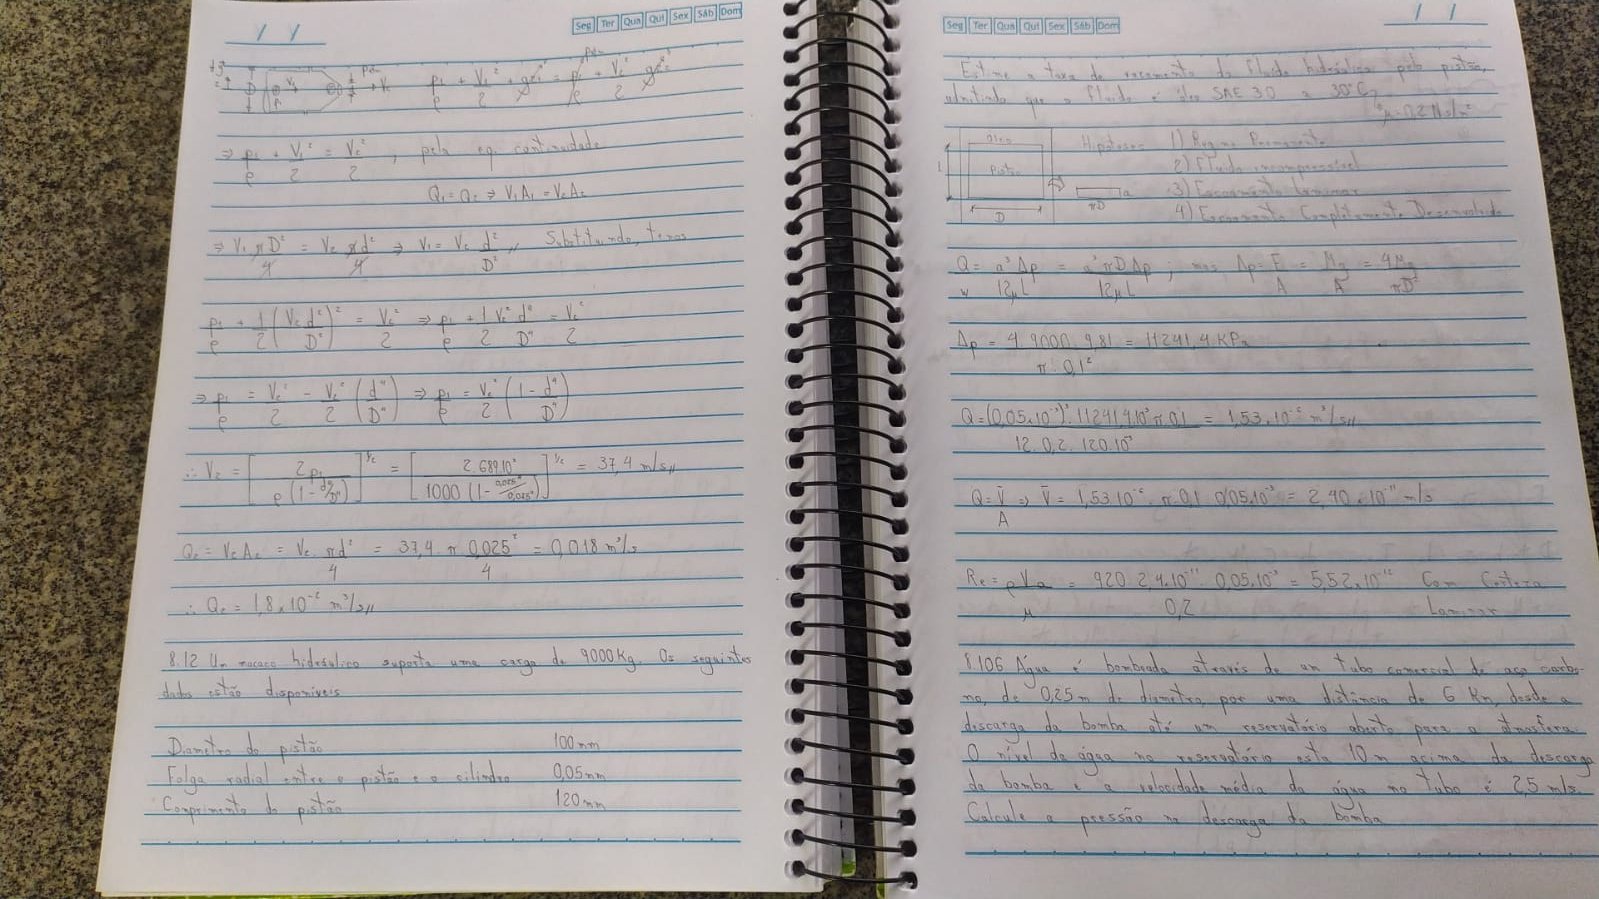 Seg Ter Qua Qui Sex Sáb Dom
p₁/ρ + V₁²/2 + gz₁ = p₂/ρ + V₂²/2 + gz₂
⇒ p₁/ρ + V₁²/2 = V₂²/2 , pela eq. continuidade
Q₁ = Q₂ ⇒ V₁A₁ = V₂A₂
⇒ V₁ πD²/4 = V₂ πd²/4 ⇒ V₁ = V₂ d²/D² // Substituindo, temos
p₁/ρ + 1/2 (V₂ d²/D²)² = V₂²/2 ⇒ p₁/ρ + 1/2 V₂² d⁴/D⁴ = V₂²/2
⇒ p₁/ρ = V₂²/2 - V₂²/2 (d⁴/D⁴) ⇒ p₁/ρ = V₂²/2 (1 - d⁴/D⁴)
∴ V₂ = [2p₁/ρ(1 - d⁴/D⁴)]^1/2 = [2.689.10³/1000(1 - )]^1/2 = 37,4 m/s //
Q₂ = V₂A₂ = V₂ πd²/4 = 37,4 π 0,025²/4 = 0,018 m³/s
∴ Q₂ = 1,8 x 10⁻² m³/s //
8.12 Um macaco hidráulico suporta uma carga de 9000Kg. Os seguintes
dados estão disponíveis
Diametro do pistão 100mm
Folga radial entre o pistão e o cilindro 0,05mm
Comprimento do pistão 120mm
Seg Ter Qua Qui Sex Sáb Dom
Estime a taxa de vazamento do fluido hidráulico pelo pistão,
admitindo que o fluido é óleo SAE 30 a 30°C
μ = 0,2 N.s/m²
Hipóteses 1) Regime Permanente
Pistão 2) Fluido incompressível
3) Escoamento Laminar
a
πD
L
D
4) Escoamento Completamente Desenvolvido
Q/w = a³Δp/12μL = a³πDΔp/12μL ; mas Δp = F/A = Mg/A = 4Mg/πD²
Δp = 4.9000.9,81/π.0,1² = 11241,4 KPa
Q = (0,05x10⁻³)³.11241,4.10³ π 0,1/12.0,2.120.10⁻³ = 1,53 x 10⁻⁶ m³/s //
Q/A = V̄ ⇒ V̄ = 1,53.10⁻⁶ . π 0,1 0,05.10⁻³ = 2,40 x 10⁻¹¹ m/s
Re = ρVa/μ = 920 2,4.10⁻¹¹ 0,05.10⁻³/0,2 = 5,52 x 10⁻¹² Com Certeza
Laminar
8.106 Água é bombeada através de um tubo comercial de aço carbo-
no, de 0,25m de diametro, por uma distância de 6 Km, desde a
descarga da bomba até um reservatório aberto para a atmosfera
O nível da água no reservatório esta 10 m acima da descarga
da bomba e a velocidade média da água no tubo é 2,5 m/s.
Calcule a pressão na descarga da bomba